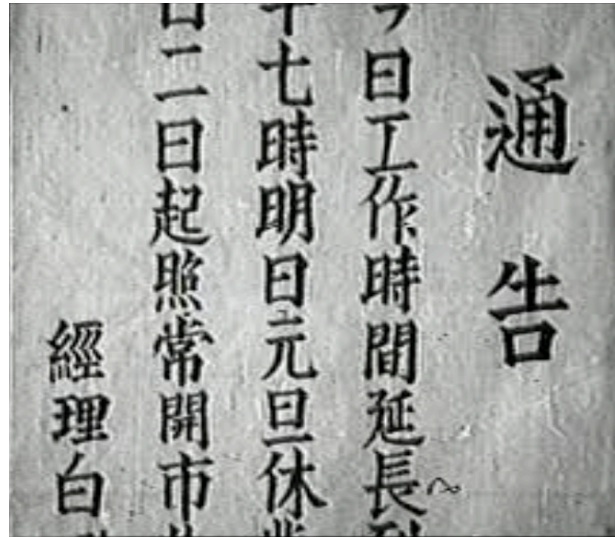 通告
今日工作時間延長到
七時明日元旦休業
二日起照常開市
經理白